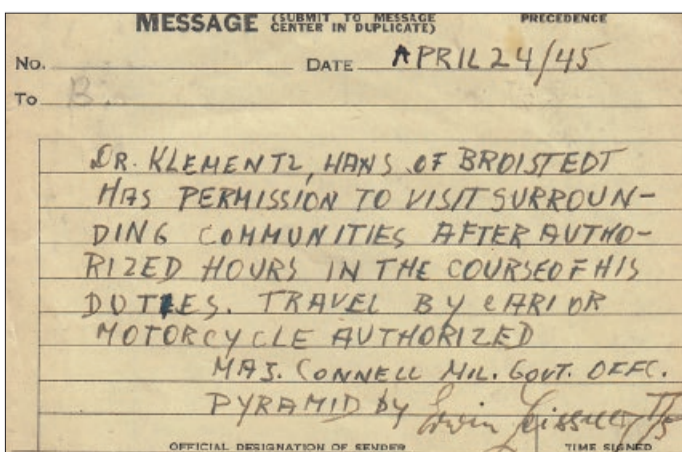 MESSAGE (SUBMIT TO MESSAGE CENTER IN DUPLICATE) PRECEDENCE
No. DATE APRIL 24/45
To B.
DR. KLEMENTZ, HANS OF BROISTEDT
HAS PERMISSION TO VISIT SURROUN-
DING COMMUNITIES AFTER AUTHO-
RIZED HOURS IN THE COURSE OF HIS
DUTIES. TRAVEL BY CAR OR
MOTORCYCLE AUTHORIZED
MAJ. CONNELL MIL. GOVT. OFFC.
PYRAMID by T/5
OFFICIAL DESIGNATION OF SENDER TIME SIGNED